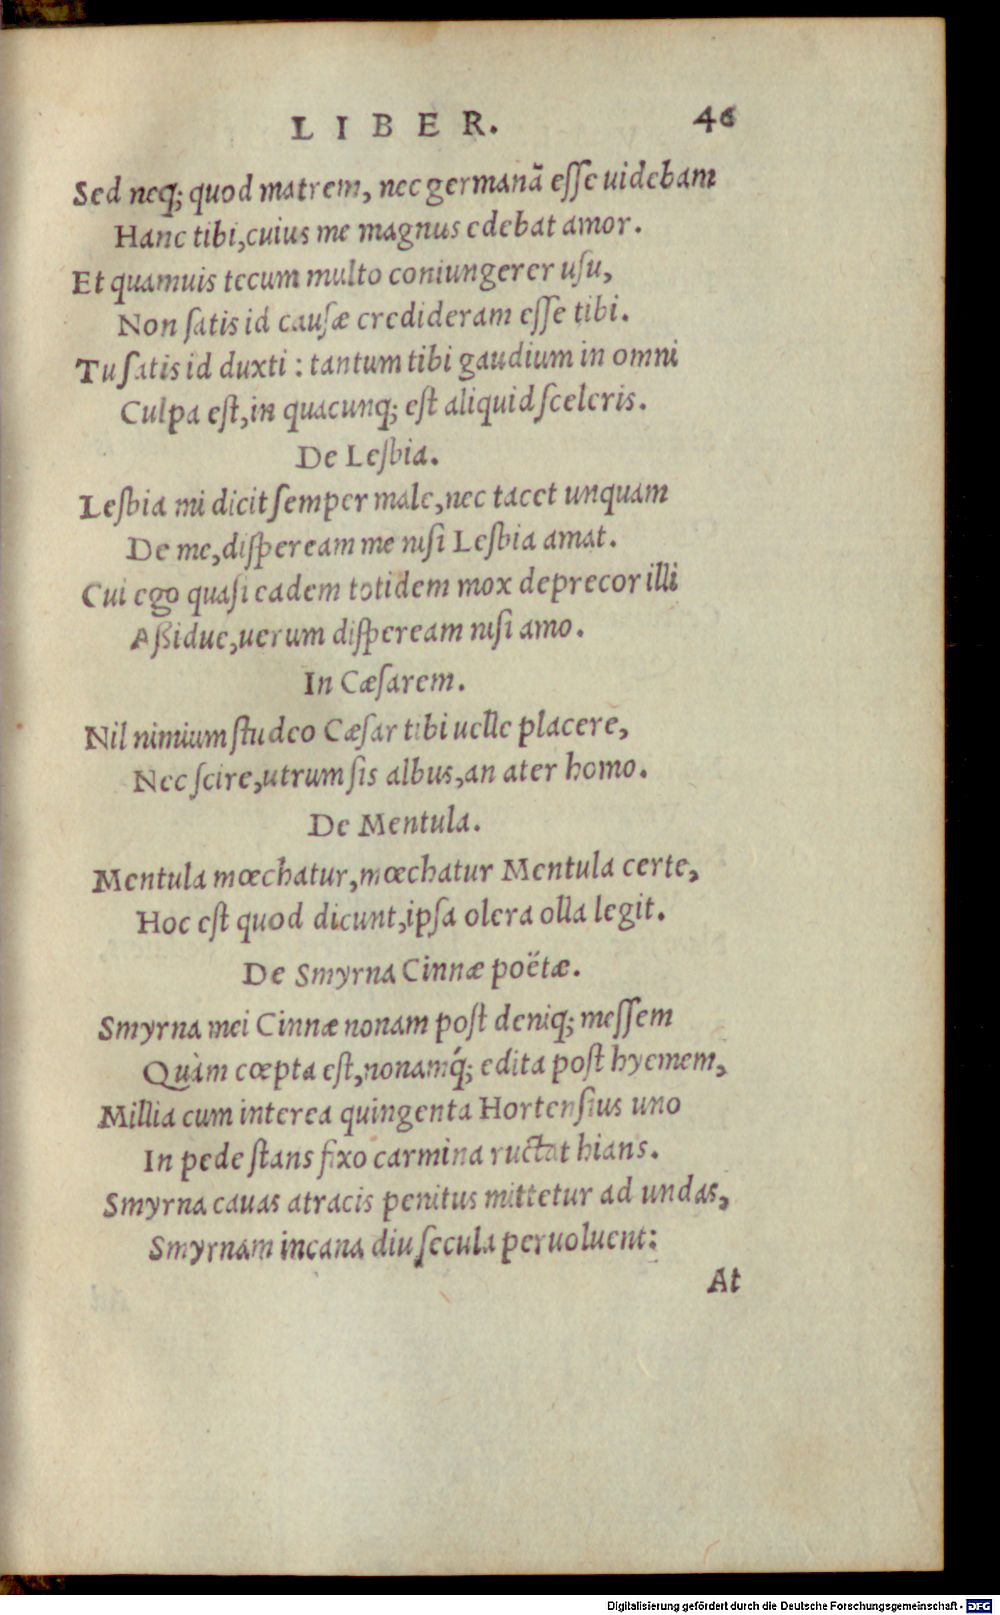 LIBER. 46
Sed neq; quod matrem, nec germanã eſſe uidebam
Hanc tibi, cuius me magnus edebat amor.
Et quamuis tecum multo coniungerer uſu,
Non ſatis id cauſæ credideram eſſe tibi.
Tu ſatis id duxti : tantum tibi gaudium in omni
Culpa eſt, in quacunq; eſt aliquid ſceleris.
De Leſbia.
Leſbia mi dicit ſemper male, nec tacet unquam
De me, diſpeream me niſi Leſbia amat.
Cui ego quaſi eadem totidem mox deprecor illi
Aßidue, uerum diſpeream niſi amo.
In Cæſarem.
Nil nimium ſtudeo Cæſar tibi uelle placere,
Nec ſcire, utrum ſis albus, an ater homo.
De Mentula.
Mentula mœchatur, mœchatur Mentula certe,
Hoc eſt quod dicunt, ipſa olera olla legit.
De Smyrna Cinnæ poëtæ.
Smyrna mei Cinnæ nonam poſt deniq; meſſem
Quàm cœpta eſt, nonamq́; edita poſt hyemem,
Millia cum interea quingenta Hortenſius uno
In pede ſtans fixo carmina ructat hians.
Smyrna cauas atracis penitus mittetur ad undas,
Smyrnam incana diu ſecula peruoluent:
At
Digitalisierung gefördert durch die Deutsche Forschungsgemeinschaft - DFG